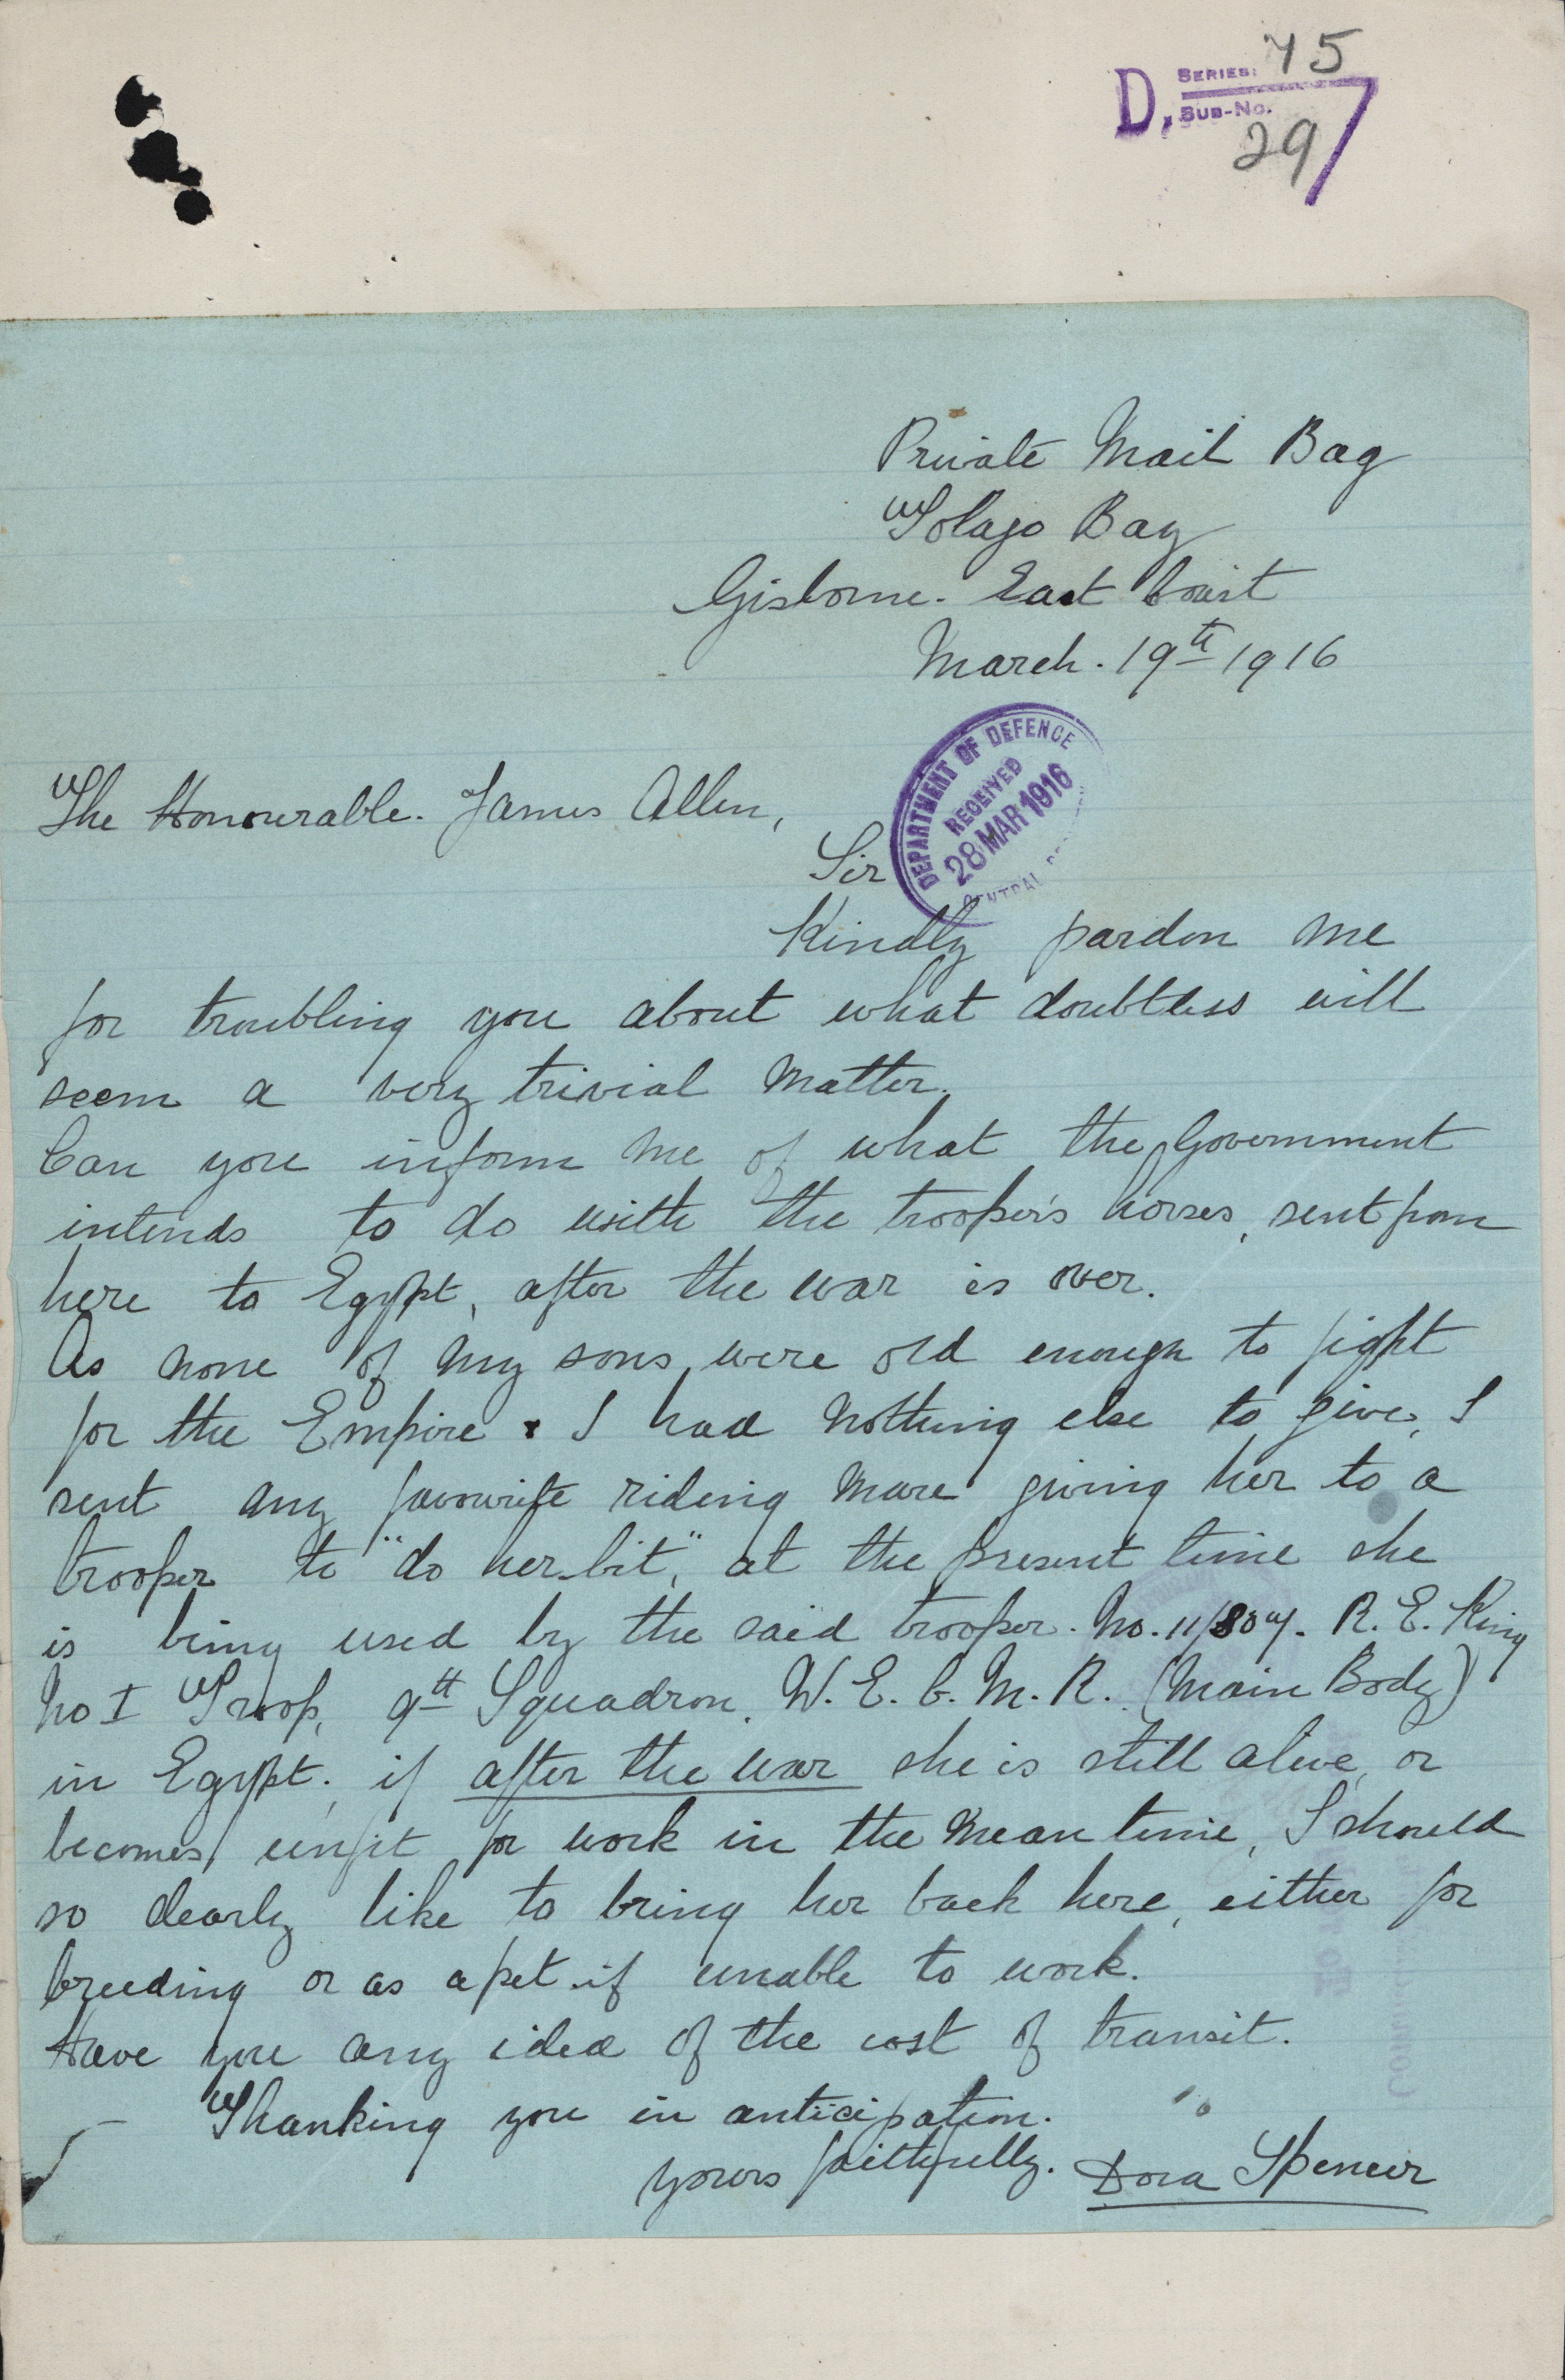 D. SERIES: 45
SUB-No. 29
Private Mail Bag
Tolago Bay
Gisborne. East Coast
March. 19th 1916
DEPARTMENT OF DEFENCE
RECEIVED
28 MAR 1916
CENTRAL
The Honourable. James Allen,
Sir
Kindly pardon me
for troubling you about what doubtless will
seem a very trivial matter.
Can you inform me of what the Government
intends to do with the trooper's horses, sent from
here to Egypt, after the war is over.
As none of my sons, were old enough to fight
for the Empire & I had nothing else to give, I
sent my favourite riding mare giving her to a
trooper to "do her bit," at the present time she
is being used by the said trooper. No. 11/807. R. E. King
No I Troop, 9th Squadron. W. E. C. M. R. (Main Body)
in Egypt., if after the war she is still alive, or
becomes unfit for work in the mean time, I should
so dearly like to bring her back here, either for
breeding or as a pet if unable to work.
Have you any idea of the cost of transit.
Thanking you in anticipation.
Yours faithfully. Dora Spencer